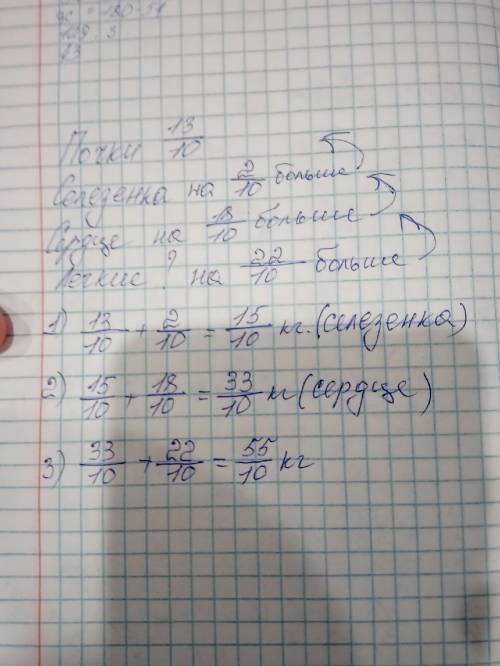 Почки 13/10
Селезенка на 2/10 больше
Сердце на 18/10 больше
Легкие ? на 22/10 больше
1) 13/10 + 2/10 = 15/10 кг. (селезенка)
2) 15/10 + 18/10 = 33/10 кг (сердце)
3) 33/10 + 22/10 = 55/10 кг